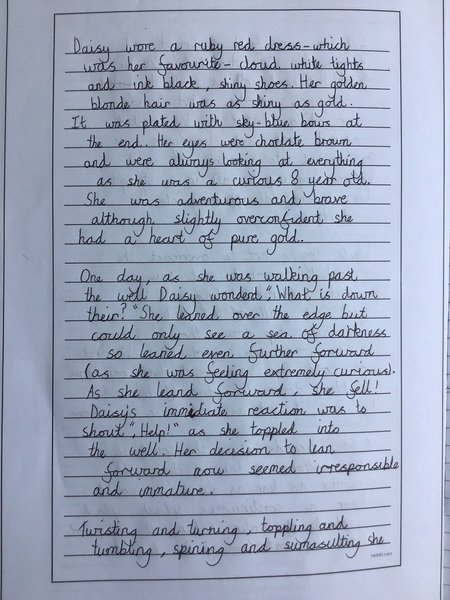 Daisy wore a ruby red dress - which
was her favourite - cloud white tights
and ink black, shiny shoes. Her golden
blonde hair was as shiny as gold.
It was plated with sky-blue bows at
the end. Her eyes were choclate brown
and were always looking at everything
as she was a curious 8 year old.
She was adventurous and brave
although slightly overconfident she
had a heart of pure gold.

One day, as she was walking past
the well Daisy wonderd", What is down
their?" She leaned over the edge but
could only see a sea of darkness
so leaned even further forward
(as she was feeling extremely curious).
As she leand forward, she fell!
Daisys immediate reaction was to
shout ", Help!" as she toppled into
the well. Her decision to lean
forward now seemed irresponsible
and immature.

Twisting and turning, toppling and
tumbling, spining and sumasulting she
twinkl.com